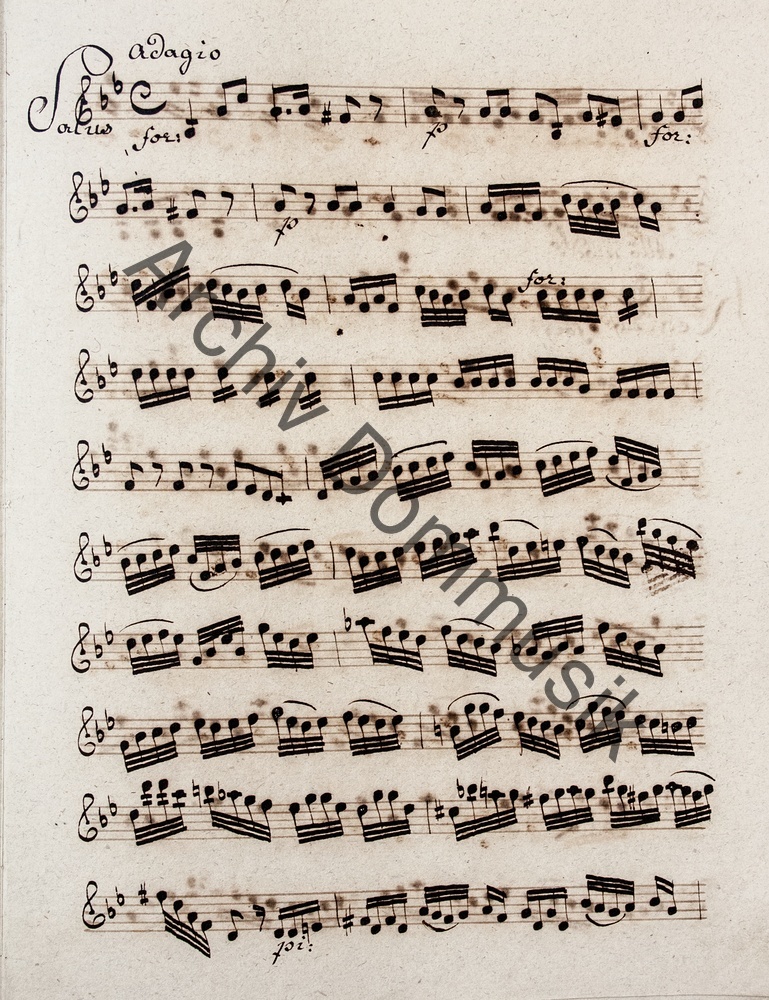 Adagio
Solus
for:
p
for:
p
for:
pi:
Archiv Dommusik